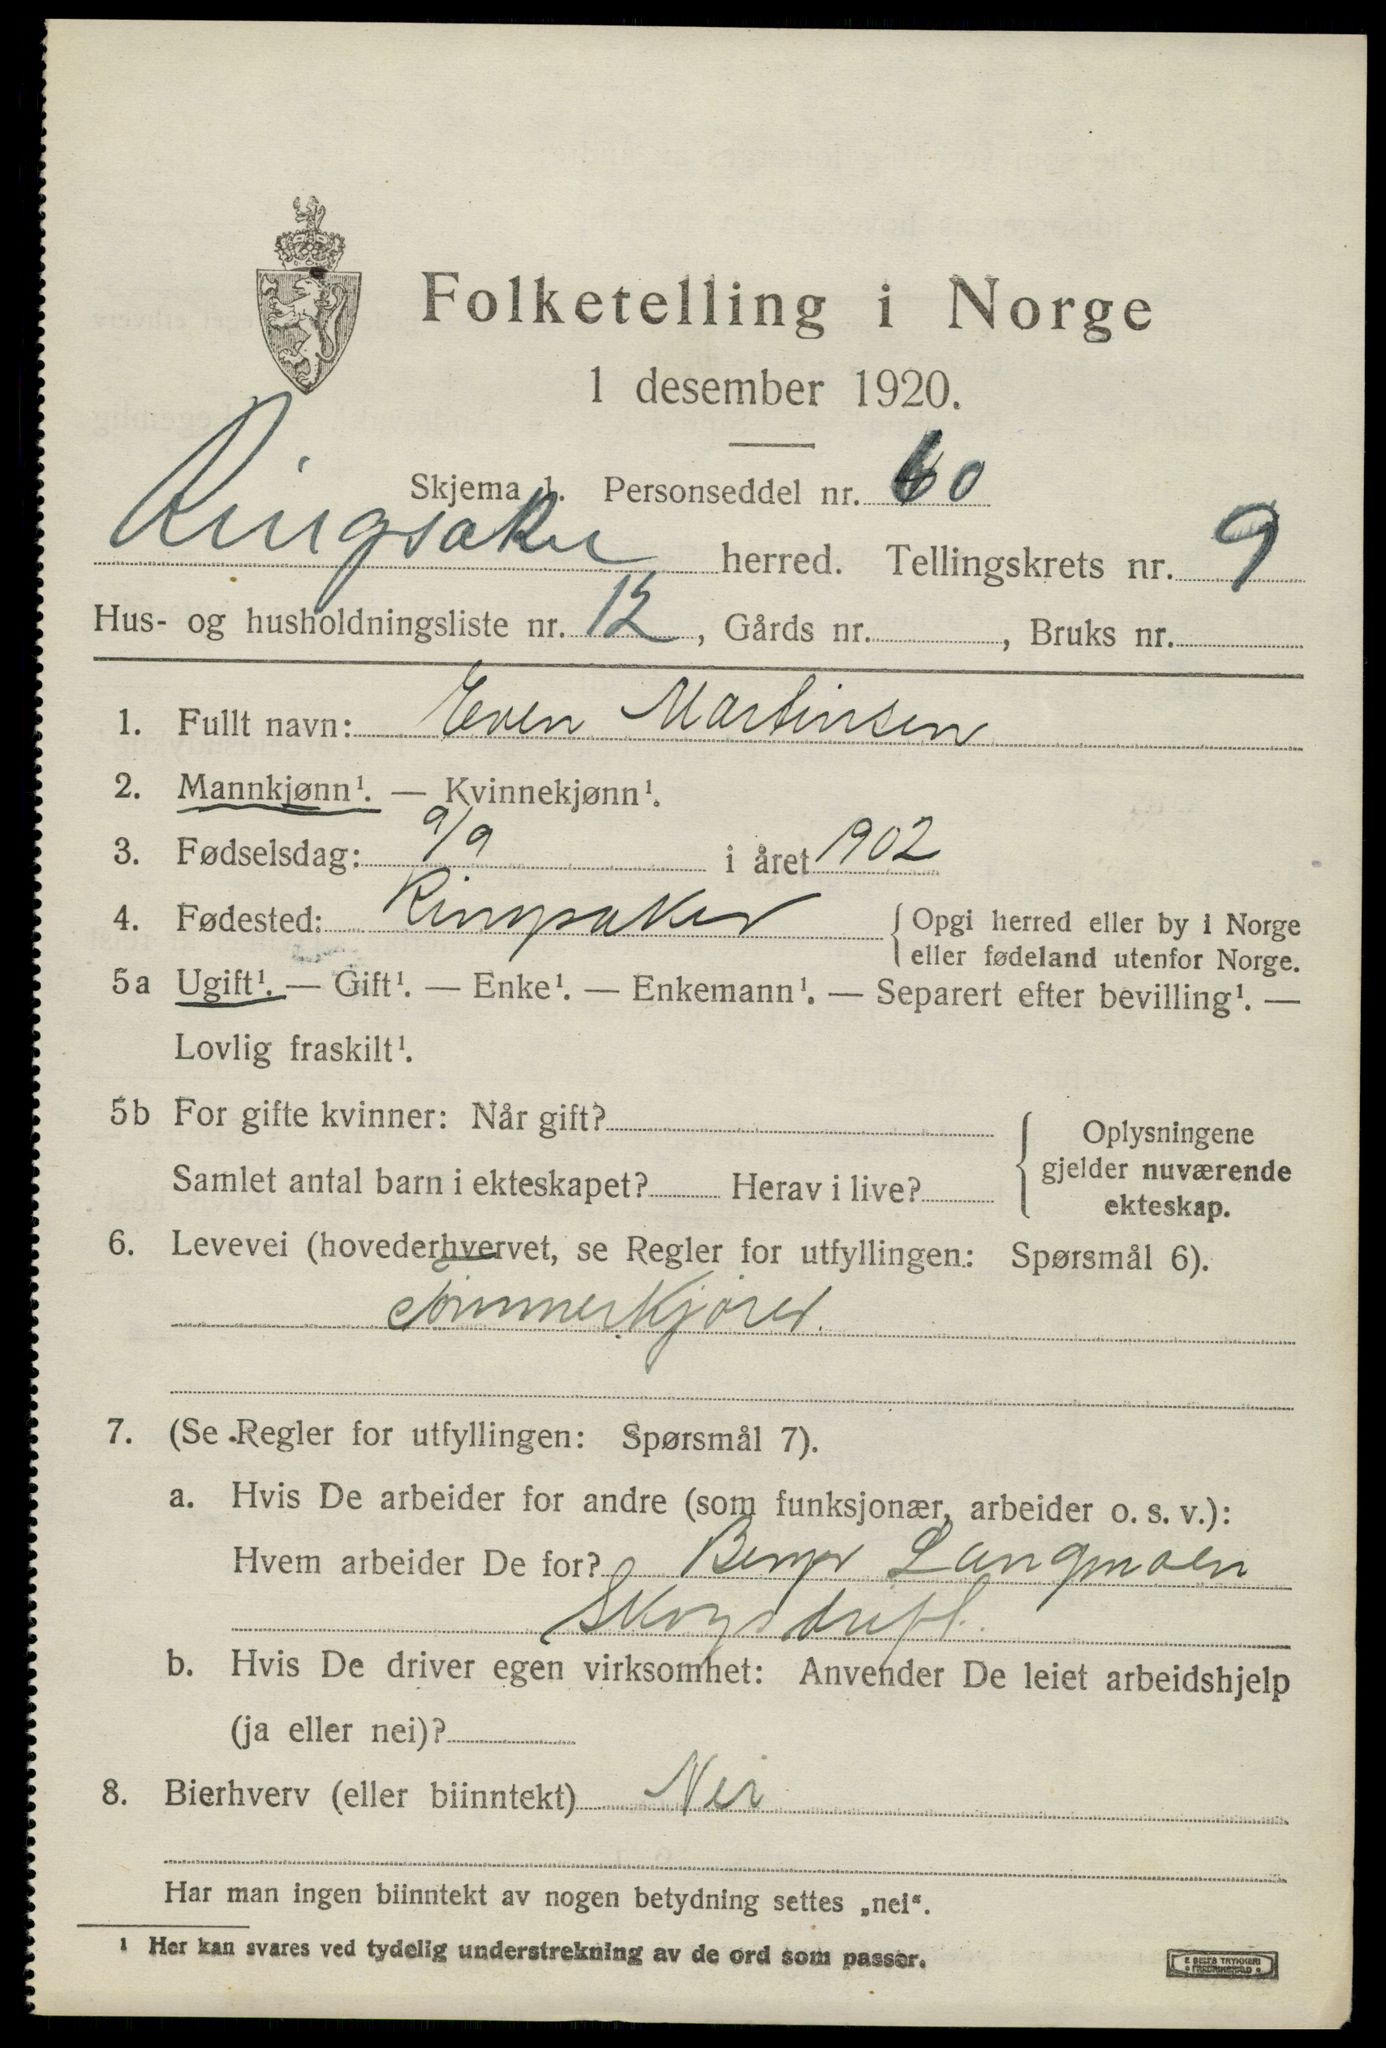 Folketelling i Norge
1 desember 1920.
Skjema 1. Personseddel nr. 60
Ringsaker herred. Tellingskrets nr. 9
Hus- og husholdningsliste nr. 12, Gårds nr. , Bruks nr.
1. Fullt navn: Even Martinsen
2. Mannkjønn¹. — Kvinnekjønn¹.
3. Fødselsdag: 9/9 i året 1902
4. Fødested: Ringsaker { Opgi herred eller by i Norge
eller fødeland utenfor Norge.
5a Ugift¹. — Gift¹. — Enke¹. — Enkemann¹. — Separert efter bevilling¹. —
Lovlig fraskilt¹.
5b For gifte kvinner: Når gift?
Samlet antal barn i ekteskapet? Herav i live?
{ Oplysningene
gjelder nuværende
ekteskap.
6. Levevei (hovederhvervet, se Regler for utfyllingen: Spørsmål 6).
Tømmerkjører.
7. (Se Regler for utfyllingen: Spørsmål 7).
a. Hvis De arbeider for andre (som funksjonær, arbeider o. s. v.):
Hvem arbeider De for? Langmoen
Skogsdrift.
b. Hvis De driver egen virksomhet: Anvender De leiet arbeidshjelp
(ja eller nei)?
8. Bierhverv (eller biinntekt) Nei
Har man ingen biinntekt av nogen betydning settes „nei“.
¹ Her kan svares ved tydelig understrekning av de ord som passer.